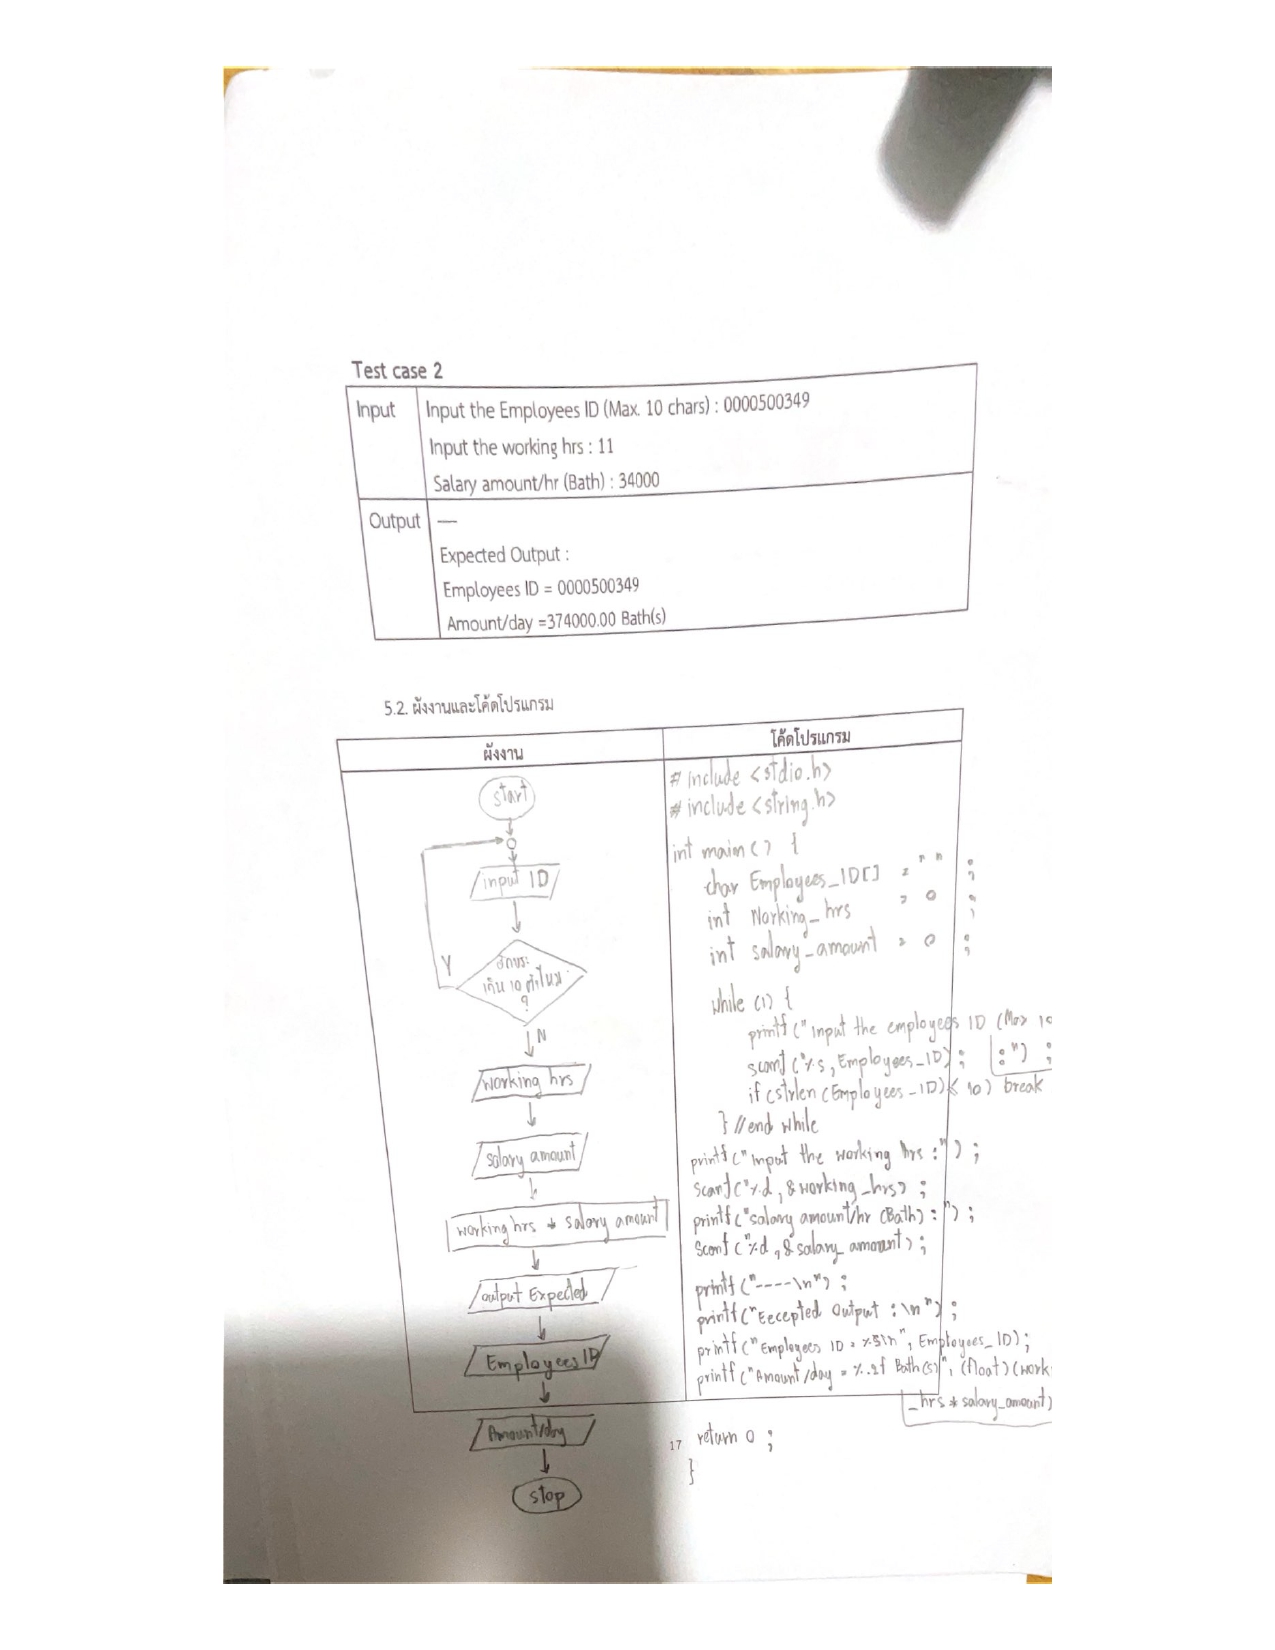 Test case 2
Input
Input the Employees ID (Max. 10 chars) : 0000500349
Input the working hrs : 11
Salary amount/hr (Bath) : 34000
Output
—
Expected Output :
Employees ID = 0000500349
Amount/day =374000.00 Bath(s)
5.2. ผังงานและโค้ดโปรแกรม
ผังงาน
start
input ID
อักขระ
เกิน 10 ตัวไหม
?
Y
N
working hrs
salary amount
working hrs * salary amount
output Expected
Employees ID
Amount/day
stop
โค้ดโปรแกรม
# include <stdio.h>
# include <string.h>
int main() {
char Employees_ID[] = " " ;
int Working_hrs = 0 ;
int salary_amount = 0 ;
while (1) {
printf ("Input the employees ID (Max 10
:") ;
scanf ("%s, Employees_ID) ;
if (strlen (Employees_ID) < 10) break
} // end while
printf ("Input the working hrs :") ;
scanf ("%d, &working_hrs) ;
printf ("salary amount/hr (Bath) : ") ;
scanf ("%d, &salary_amount) ;
printf ("----\n") ;
printf ("Eecepted Output : \n") ;
printf ("Employees ID = %s\n", Employees_ID);
printf ("Amount/day = %.2f Bath(s)", (float)(work
_hrs * salary_amount)
return 0 ;
}
17